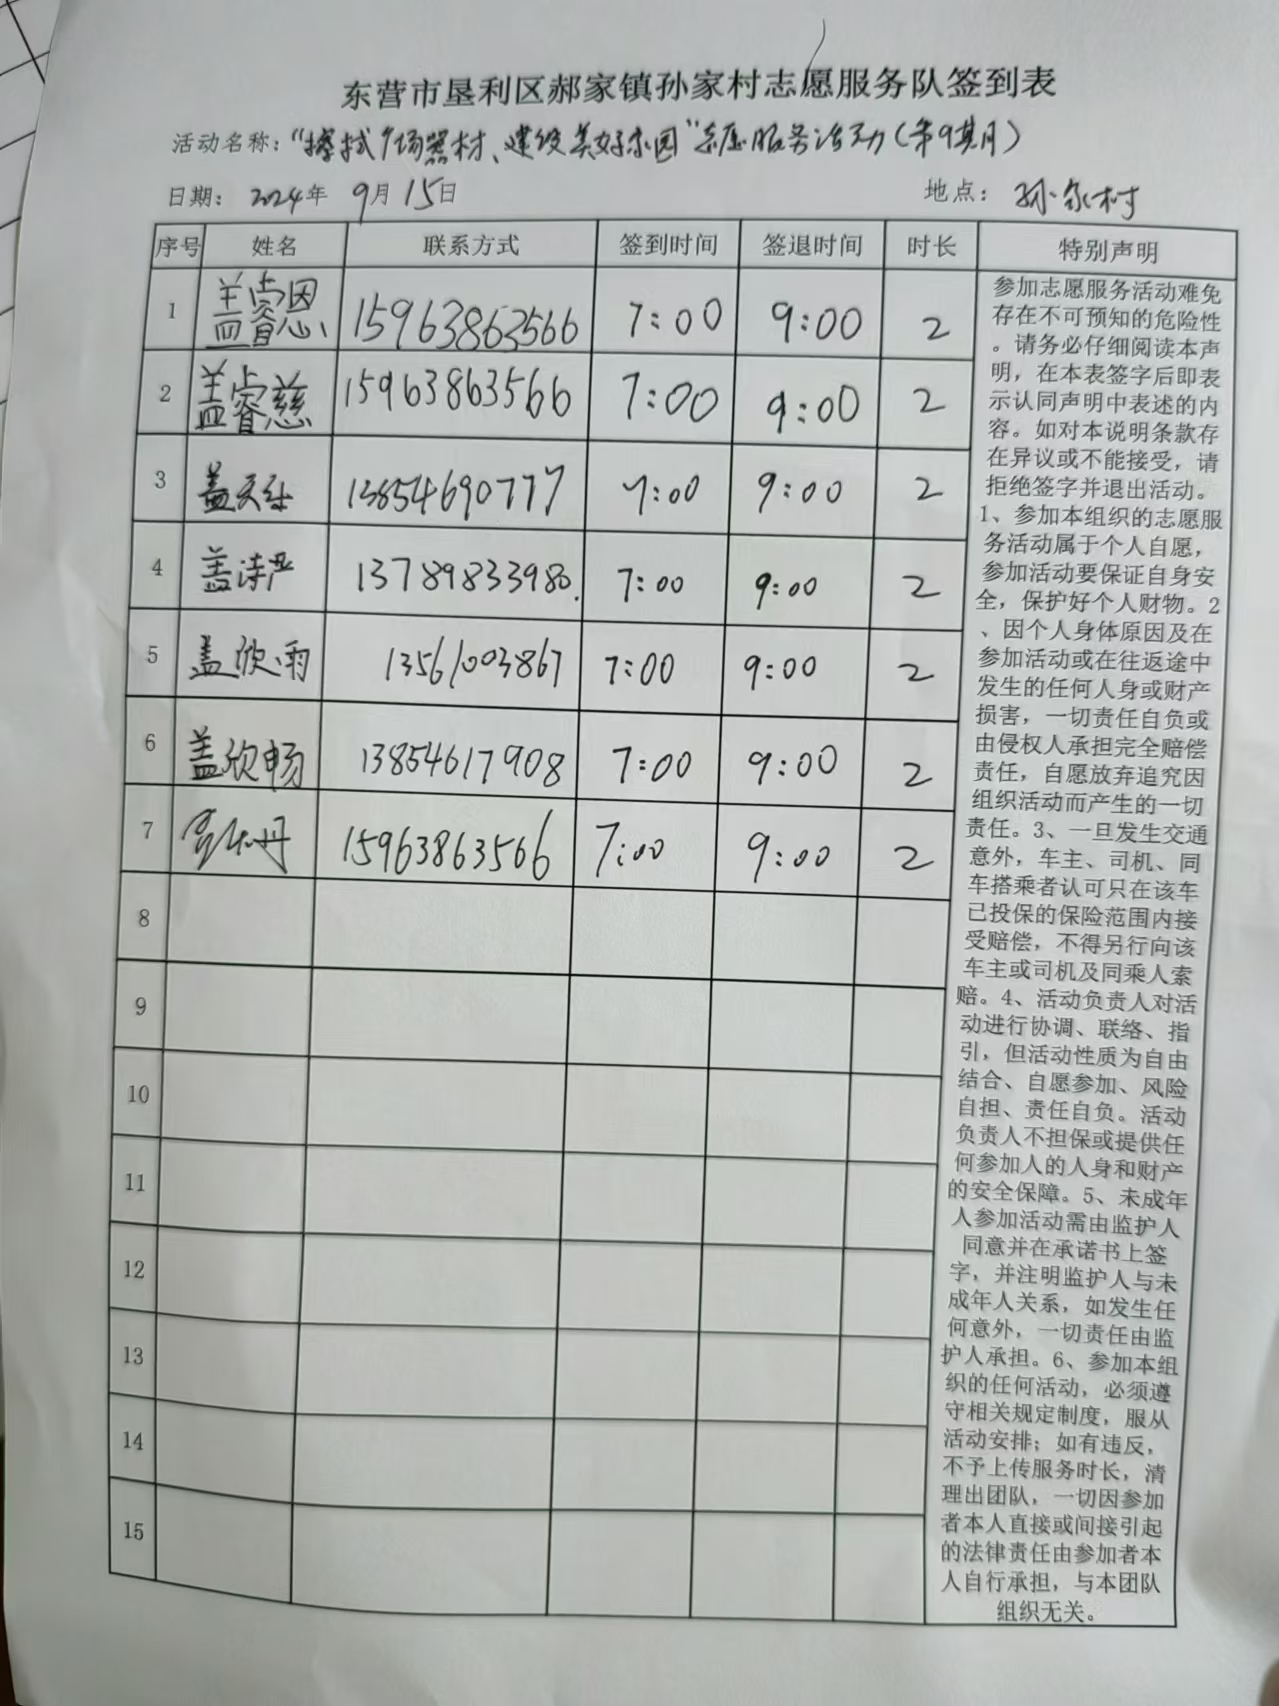 东营市垦利区郝家镇孙家村志愿服务队签到表
活动名称：“擦拭广场器材、建设美好家园”志愿服务活动（第9期）
日期： 2024年 9月15日 地点： 孙家村
序号 姓名 联系方式 签到时间 签退时间 时长 特别声明
1 盖睿恩 15963863566 7:00 9:00 2
2 盖睿慈 15963863566 7:00 9:00 2
3 盖天 13854690777 7:00 9:00 2
4 盖诗严 13789833980. 7:00 9:00 2
5 盖欣雨 13561003867 7:00 9:00 2
6 盖欣畅 13854617908 7:00 9:00 2
7 丹 15963863566 7:00 9:00 2
8
9
10
11
12
13
14
15
参加志愿服务活动难免
存在不可预知的危险性
。请务必仔细阅读本声
明，在本表签字后即表
示认同声明中表述的内
容。如对本说明条款存
在异议或不能接受，请
拒绝签字并退出活动。
1、参加本组织的志愿服
务活动属于个人自愿，
参加活动要保证自身安
全，保护好个人财物。2
、因个人身体原因及在
参加活动或在往返途中
发生的任何人身或财产
损害，一切责任自负或
由侵权人承担完全赔偿
责任，自愿放弃追究因
组织活动而产生的一切
责任。3、一旦发生交通
意外，车主、司机、同
车搭乘者认可只在该车
已投保的保险范围内接
受赔偿，不得另行向该
车主或司机及同乘人索
赔。4、活动负责人对活
动进行协调、联络、指
引，但活动性质为自由
结合、自愿参加、风险
自担、责任自负。活动
负责人不担保或提供任
何参加人的人身和财产
的安全保障。5、未成年
人参加活动需由监护人
同意并在承诺书上签
字，并注明监护人与未
成年人关系，如发生任
何意外，一切责任由监
护人承担。6、参加本组
织的任何活动，必须遵
守相关规定制度，服从
活动安排；如有违反，
不予上传服务时长，清
理出团队，一切因参加
者本人直接或间接引起
的法律责任由参加者本
人自行承担，与本团队
组织无关。